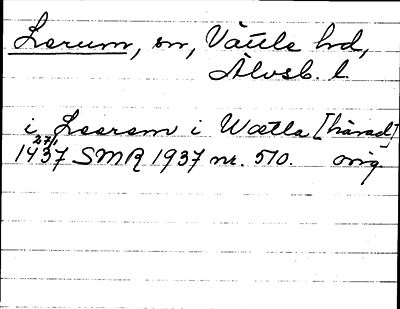 Lerum, sn, Vättle hd,
Älvsb. l.
i Leerem i Wætla [härad]
27/1
1437 SMR 1937 nr. 510. orig